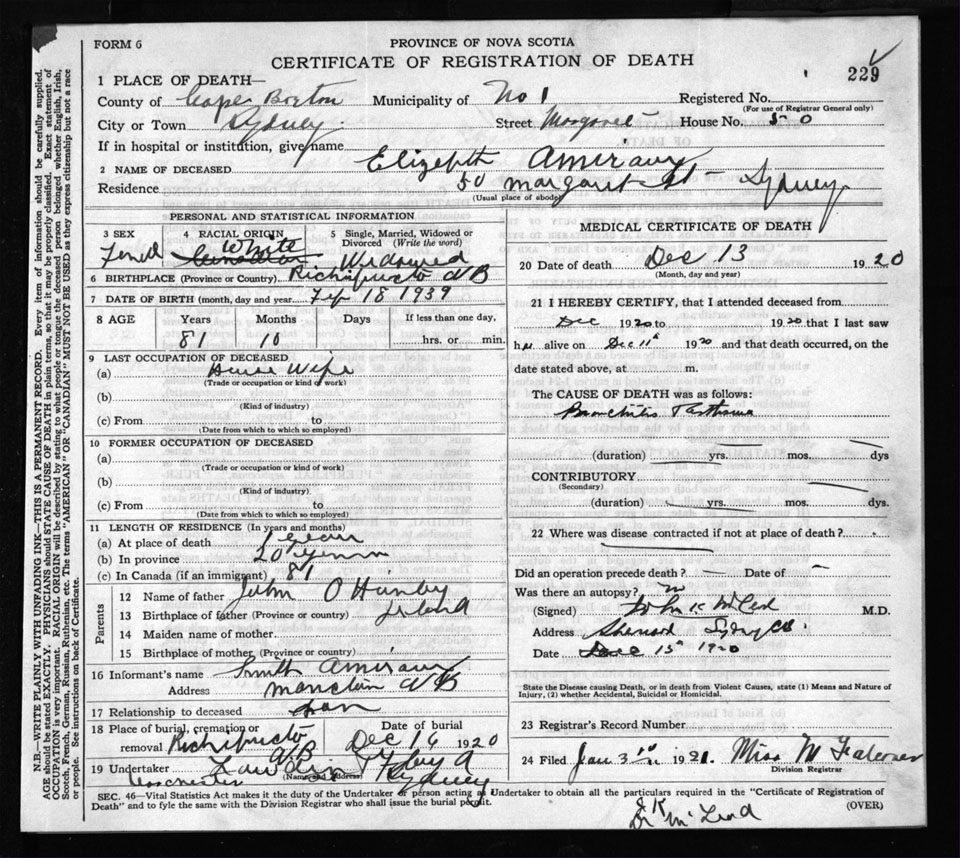 FORM 6
PROVINCE OF NOVA SCOTIA
CERTIFICATE OF REGISTRATION OF DEATH
229
1 PLACE OF DEATH—
County of Cape Breton Municipality of No 1 Registered No.
(For use of Registrar General only)
City or Town Sydney Street House No. 50
If in hospital or institution, give name
2 NAME OF DECEASED Elizebth Amiraux
Residence 50 margaret St - Sydney
(Usual place of abode)
PERSONAL AND STATISTICAL INFORMATION
3 SEX 4 RACIAL ORIGIN 5 Single, Married, Widowed or Divorced (Write the word)
White
Widowed
6 BIRTHPLACE (Province or Country) Richibucto NB
7 DATE OF BIRTH (month, day and year) Feb 18 1939
8 AGE Years Months Days If less than one day,
81 10 hrs. or min.
9 LAST OCCUPATION OF DECEASED
(a) House Wife
(Trade or occupation or kind of work)
(b)
(Kind of industry)
(c) From to
(Date from which to which so employed)
10 FORMER OCCUPATION OF DECEASED
(a)
(Trade or occupation or kind of work)
(b)
(Kind of industry)
(c) From to
(Date from which to which so employed)
11 LENGTH OF RESIDENCE (In years and months)
(a) At place of death 1 year
(b) In province 20 years
(c) In Canada (if an immigrant) 81
Parents
12 Name of father John
13 Birthplace of father (Province or country)
14 Maiden name of mother
15 Birthplace of mother (Province or country)
16 Informant's name Amiraux
Address Moncton NB
17 Relationship to deceased Son
18 Place of burial, cremation or removal Richibucto NB Date of burial Dec 16 1920
19 Undertaker
(Name and Address)
Sydney
MEDICAL CERTIFICATE OF DEATH
20 Date of death Dec 13 1920
(Month, day and year)
21 I HEREBY CERTIFY, that I attended deceased from
Dec 1920 to 1920 that I last saw
h alive on Dec 11th 1920 and that death occurred, on the
date stated above, at m.
The CAUSE OF DEATH was as follows:
Bronchitis
(duration) yrs. mos. dys
CONTRIBUTORY
(Secondary)
(duration) yrs. mos. dys.
22 Where was disease contracted if not at place of death?
Did an operation precede death? Date of
Was there an autopsy? no
(Signed) John K McLeod M.D.
Address Sydney CB.
Date Dec 15th 1920
State the Disease causing Death, or in death from Violent Causes, state (1) Means and Nature of
Injury, (2) whether Accidental, Suicidal or Homicidal.
23 Registrar's Record Number
24 Filed Jan 3 1921. Miss M Falconer
Division Registrar
SEC. 46—Vital Statistics Act makes it the duty of the Undertaker or person acting as Undertaker to obtain all the particulars required in the "Certificate of Registration of
Death" and to fyle the same with the Division Registrar who shall issue the burial permit.
(OVER)
Dr JK McLeod
N.B.—WRITE PLAINLY WITH UNFADING INK—THIS IS A PERMANENT RECORD. Every item of information should be carefully supplied.
AGE should be stated EXACTLY. PHYSICIANS should STATE CAUSE OF DEATH in plain terms, so that it may be properly classified. Exact statement of
OCCUPATION is very important. RACIAL ORIGIN will be described by stating to what people or tongue the deceased person belonged whether English, Irish,
Scotch, French, German, Russian, Ruthenian, etc. The terms "AMERICAN" or "CANADIAN" MUST NOT BE USED as they express citizenship but not a race
or people. See instructions on back of Certificate.